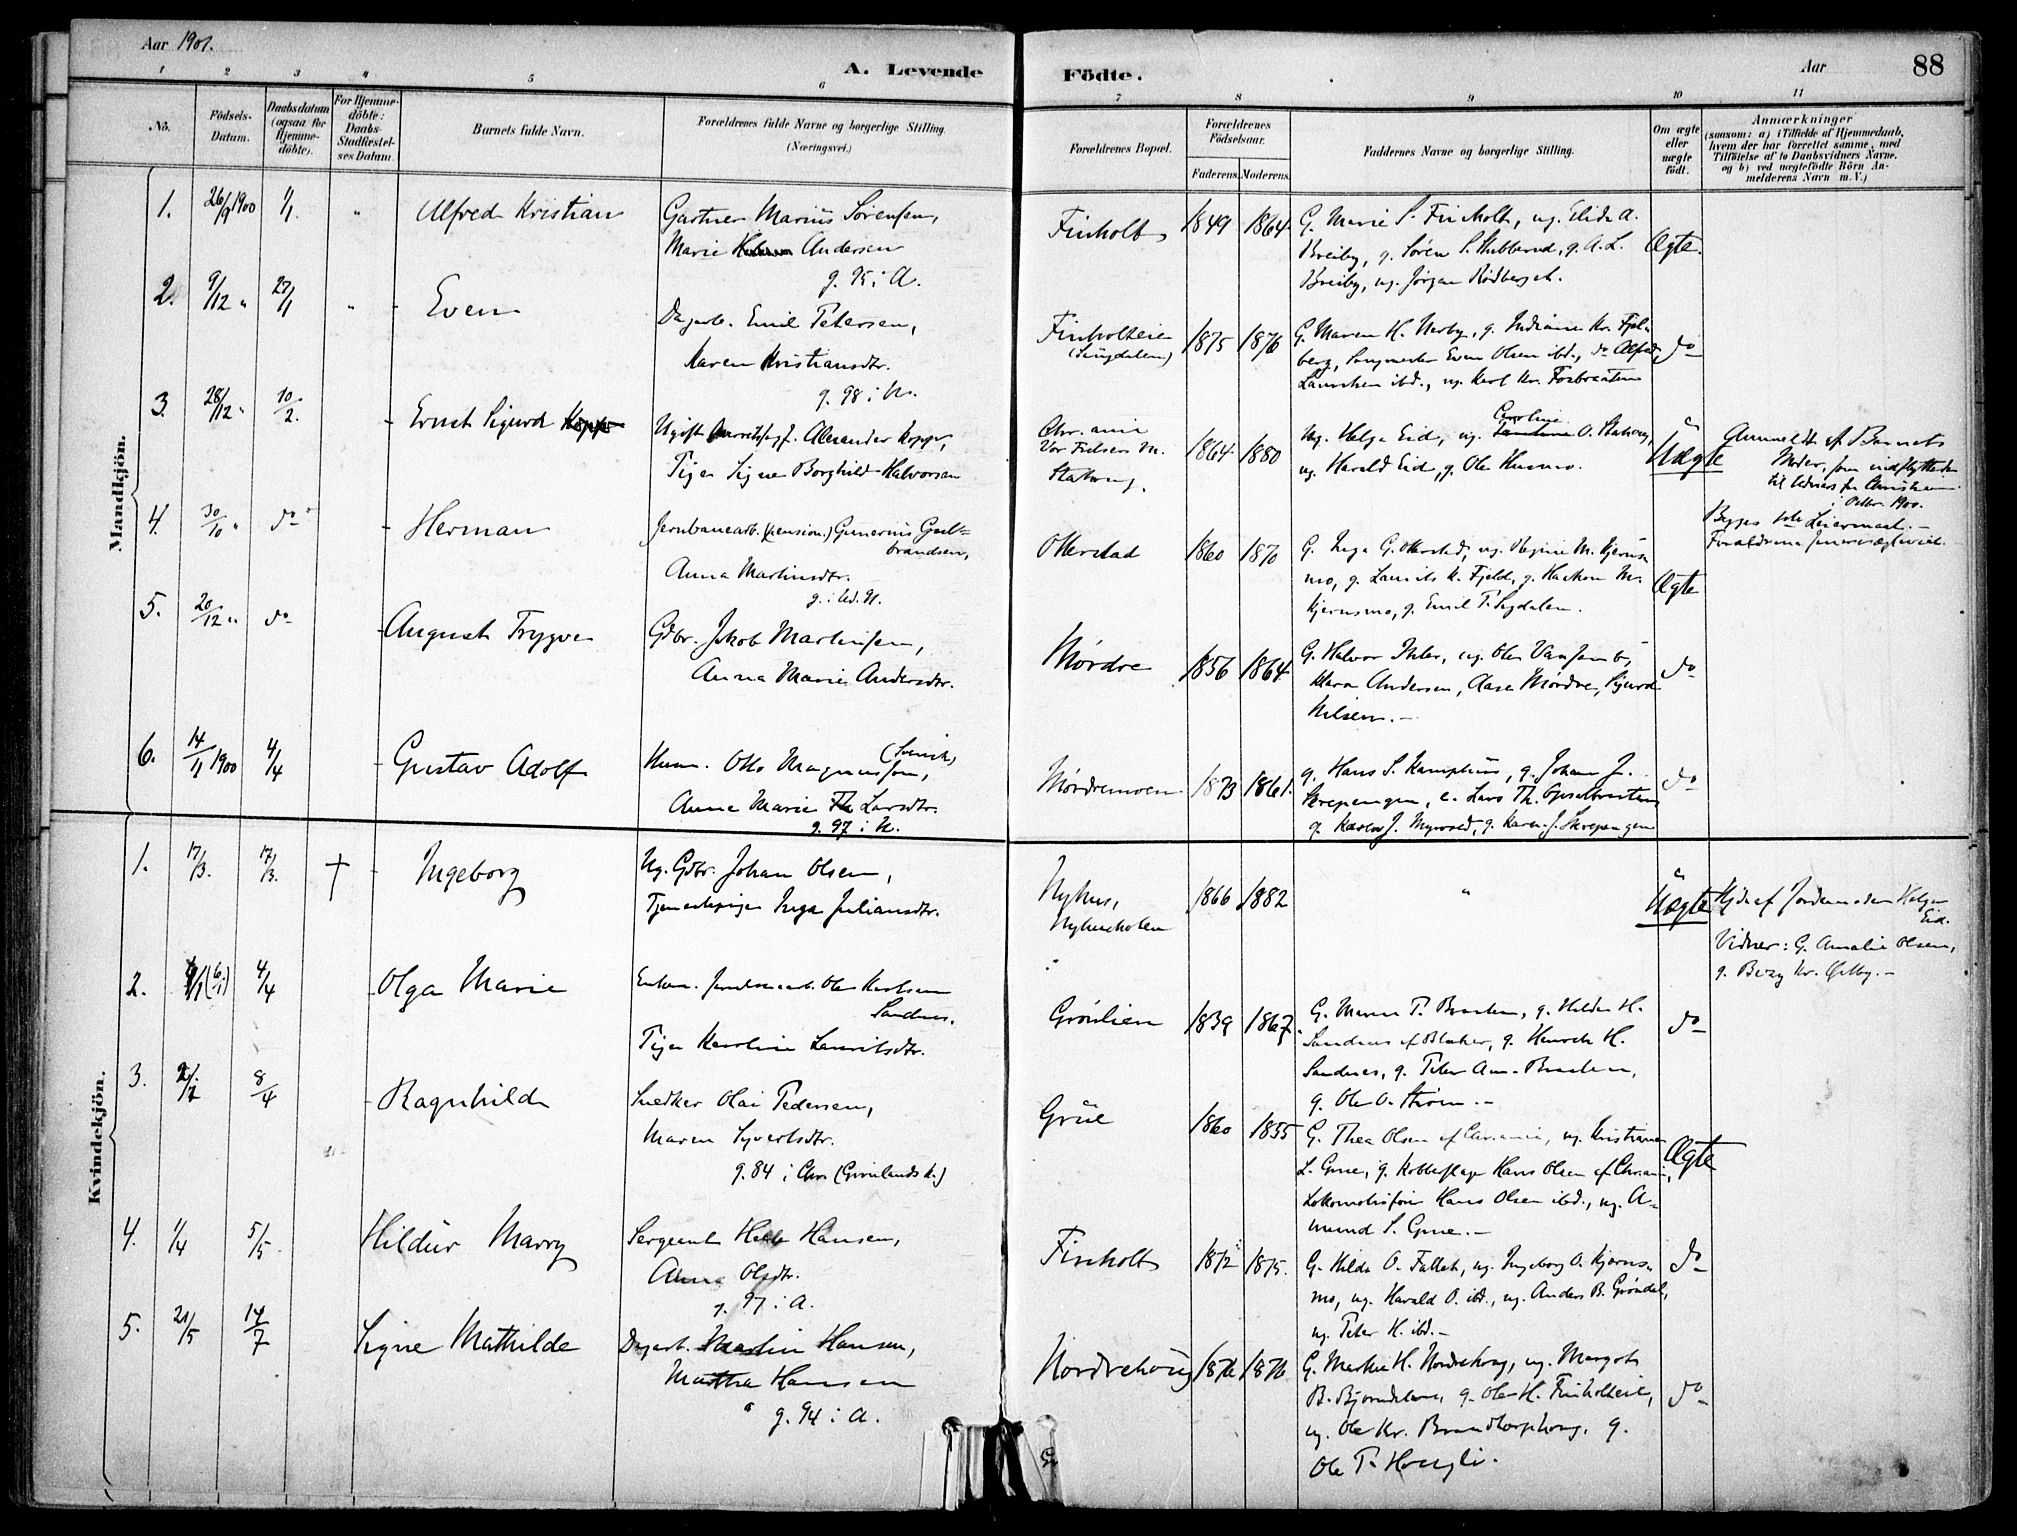 Aar 1901.
A. Levende
Födte.
Aar
88
1 2 3 4 5 6 7 8 9 10 11
No.
Födsels-
Datum.
Daabsdatum
(ogsaa for
Hjemme-
döbte).
For Hjemme-
döbte:
Daabs-
Stadfæstel-
ses Datum.
Barnets fulde Navn.
Forældrenes fulde Navne og borgerlige Stilling.
(Næringsvei.)
Forældrenes Bopæl.
Forældrenes
Födselsaar.
Faderens. Moderens.
Faddernes Navne og borgerlige Stilling.
Om ægte
eller
uægte
födt.
Anmærkninger
(saasom: a) i Tilfælde af Hjemmedaab,
hvem der har forrettet samme, med
Tilföielse af to Daabsvidners Navne.
og b) ved uægtefödte Börn An-
melderens Navn m. V.)
Mandkjön.
1. 26/9 1900 1/1. " Alfred Kristian
Gartner Marius Sørensen,
Marie Andersen
g. 95 i A.
Finholt 1849 1864
G. Marie S. Finholt, ug. Elida A.
Breiby, g. Søren S. Stubberud, g. A. L.
Breiby, ug. Jørgen Rødberget.
Ægte.
2. 9/12 " 27/1 " Even
Dagarb. Emil Petersen,
Karen Kristiansdtr.
g. 98 i N.
Finholteie
1875 1876
G. Maren H. Nerby, g.
berg, Even Olsen ibd., do Alfred
ibd., ug. Karl Kr. Fosbraaten
do
3. 28/12 " 10/2. Ernst Sigurd
Ugift Alexander Koppe,
Pige Signe Borghild Halvorsen
Chr.ania
Vor Frelsers M.
1864 1880
Ug. Helga Eid, ug. Caroline O.
ug. Harald Eid, g. Ole Husmo.
Uægte
Anmeldt af Barnets
Moder, som indflyttede
til fra Christiania
i Oktbr. 1900.
Begges 1ste Leiermaal. —
4. 30/10 " do Herman
Jernbanearb. (pension.) Gunerius Gul-
brandsen,
Anna Martinsdtr.
g. i Ud. N.
Ollerstad 1860 1870
G. Inga G. Ollerstad, ug. Regine M. Kjerns-
mo, g. Laurits K. Fjeld, g. Haakon M.
Kjernsmo, g. Emil P. Sigdalen.
Ægte
5. 20/12 " do August Trygve
Gdbr. Jakob Martinsen,
Anna Marie Andersdtr.
Mørdre 1856 1864
G. Halvor Ihler, ug. Ole
Klara Andersen, Aase Mørdre, Sigurd
Nilsen. —
do
6. 14/1 1900 4/4 Gustav Adolf
Husm. Otto Magnusson, (Svensk)
Anne Marie Larsdtr.
g. 97 i N.
Mørdremoen 1873 1861.
g. Hans S. Kamphus, g. Johan J.
Skrepengen, e. Lars Th.
g. Karl J. Myrvold, g. Karen J. Skrepengen
do
Kvindekjön.
1. 17/3. 17/3. † Ingeborg
Ug. Gdbr. Johan Olsen,
Tjenestepige Inga Juliansdtr.
Nyhus,
Nyhusholen
1866 1882 "
Uægte
Hjdøbt af Jordemoder Helga
Eid.
Vidner: G. Amalie Olsen,
g. Kr.
2. (6/1) 4/4 Olga Marie
Enkem. Ole Karlsen
Sandnes.
Pige Karoline Lauritsdtr.
Grønlien 1839 1867.
G. Maren P. Braaten, g. Hilda H.
Sandnes af Blaker, g. Henrik H.
Sandnes, g. Peter Am. Braaten,
g. Ole O. Strøm. —
do
3. 8/4 Ragnhild
Snedker Olai Pedersen,
Maren Syvertsdtr.
g. 84 i Chra (Grønlands k.)
Grüe 1860 1855
G. Thea Olsen af Chr.ania, ug. Kristiane
L. Grue, g. Hans Olsen af Chr.ania,
Hans Olsen ibd., ug. A-
mund S. Grue. —
Ægte
4. 1/4 5/5. Hildur Marry
Sergeant Hansen,
Anna Olsdtr.
g. 97 i A.
Finholt 1872 1875.
G. Hilda O. Fallet, ug. Ingeborg O. Kjerns-
mo, ug. Harald O. ibd., ug. Anders B. Grøndal,
ug. Peter H. ibd. —
do
5. 21/5 14/7 Signe Mathilde
Dagarb. Martin Hansen,
Martha Hansen
g. 94 i A.
Nordrehoug 1876 1876
G. Marthe H. Nordrehoug, ug. Margot
B. Bjørndalen, g. Ole H. Finholteie,
ug. Ole Kr. Brandtorphoug, g.
Ole P. Hougli.
do